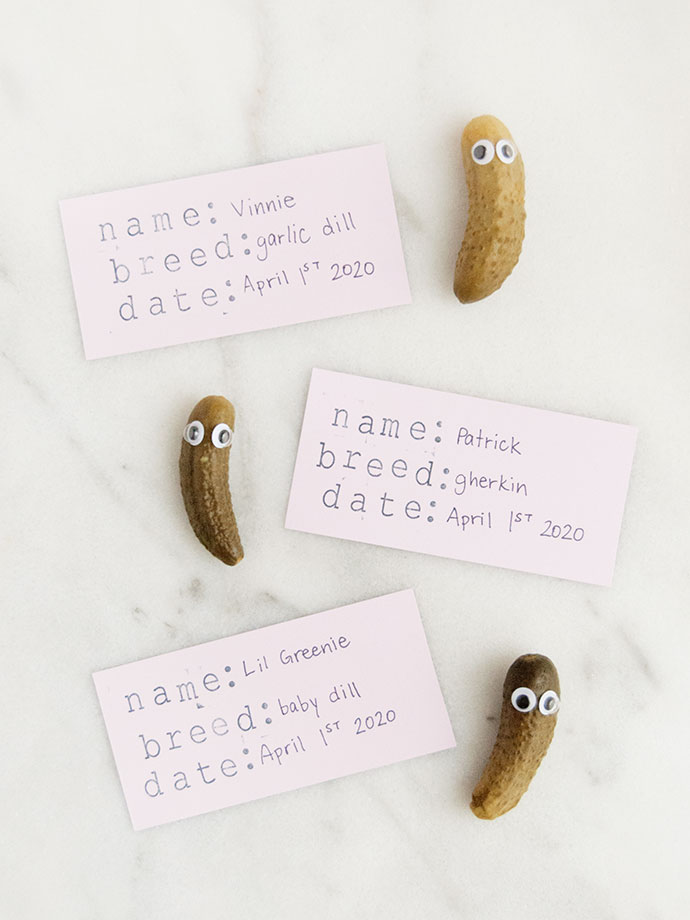 name: Vinnie
breed: garlic dill
date: April 1ST 2020
name: Patrick
breed: gherkin
date: April 1ST 2020
name: Lil Greenie
breed: baby dill
date: April 1ST 2020